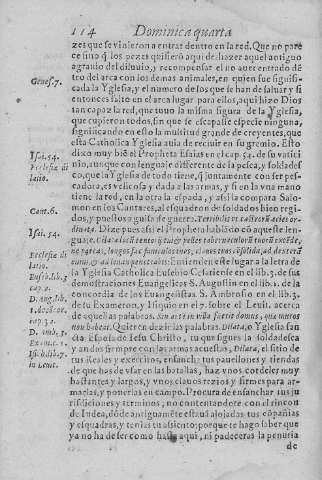 114 Dominica quarta
zes que se vinieron a entras dentro en la red. Que no pare
ce sino q̃ los pezes quisierõ aqui deshazer aquel antiguo
agrauio del diluuio, y recompensar el no auer entrado dẽ
tro del arca con los demas animales, en quien fue signifi-
Genes. 7.
cada la Yglesia, y el numero de los que se han de saluar y si
entonces falto en el arca lugar para ellos, aqui hizo Dios
tan capaz la red, que tuuo la misma figura de la Yglesia,
que cupieron todos, sin que se escapasse especie ninguna,
significando en esto la multitud grande de creyentes, que
esta Catholica Yglesia auia de recuir en su gremio. Esto
Isai. 54.
dixo muy biẽ el Propheta Esaias en el cap. 54. de su vatici
Ecclesiæ di
nio, aunque con lenguaje differente de la pesca, y soldades
latio.
co, que la Yglesia de todo tiene, q̃ juntamente con ser pes-
cadora, es velicosa y dada a las armas, y si en la vna mano
tiene la red, en la otra la espada, y assi la compara Salo-
Cant. 6.
mon en los Cantares, al esquadron de soldados bien regi-
dos, y puestos a guisa de guerra. Terribilis vt castrorũ acies or-
dinata. Dize pues assi el Propheta hablãdo cõ aquesta len-
Isai. 54.
guaje. Dilata locũ tentorij tui & pelles tabernaculorũ tuorũ extẽde,
ne parcas, longos fac funiculos tuos, clauos tuos cõsolida, ad dexterã
Ecclesiæ di
latio.
enim & ad læuam penetrabis. Entienden este lugar a la letra de
la Yglesia Catholica Eusebio Cesariense en el lib. 3. de sus
Euseb. lib. 3
cap. 2.
demostraciones Euangelicas S. Augustin en el lib. 1. de la
concordia de los Euangelistas. S. Ambrosio en el lib. 3.
D. aug. lib.
de su Exameron, y Hisquio en el 7. sobre el Leuit. acerca
de aquellas palabras. Sin autẽ in villa fuerit domus, quæ muros
cap. 32.
non habeat. Quieren dezir las palabras. Dilata, o Yglesia san
D. amb. 3.
cta Esposa de Iesu Christo, tu que sigues la soldadesca
y andas siempre con las armas acuestas, Dilata, el sitio de
tus Reales y exercitos, ensancha tus pauellones y tiendas
in Leuit.
de que has de vsar en las batallas, haz vnos cordeles muy
bastantes y largos, y vnos clauos rezios y firmes para ar-
marlas, y ponerlas en campo. Procura de ensanchar tus ju
risdiciones y terminos, no contentandote con el rincon
de Iudea, dõde antiguamẽte estauã alojadas tus cõpañias
y esquadras, y tenias tu asiento; porque te hago saber que
ya no ha de ser como hasta aqui, ni padeceras la penuria
de